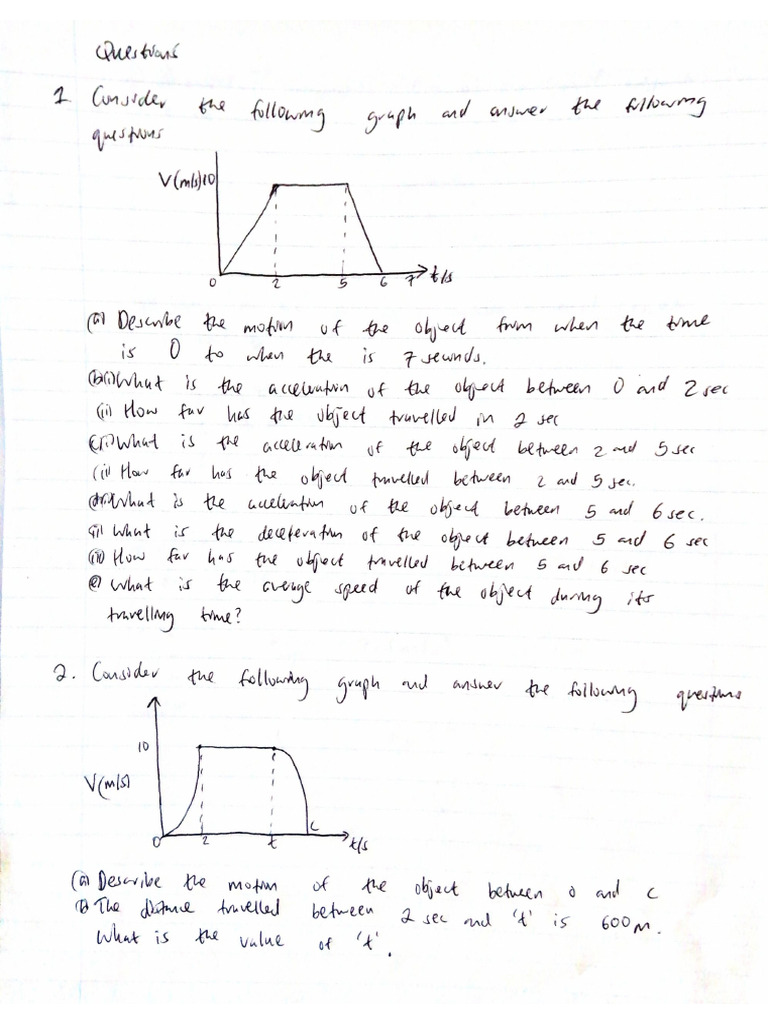 Questions
1 Consider the following graph and answer the following
questions
V(m/s)10
0 2 5 6 7 t/s
(a) Describe the motion of the object from when the time
is 0 to when the is 7 seconds.
(b)(i) What is the acceleration of the object between 0 and 2 sec
(ii) How far has the object travelled in 2 sec
(c)(i) What is the acceleration of the object between 2 and 5 sec
(ii) How far has the object travelled between 2 and 5 sec.
(d)(i) What is the acceleration of the object between 5 and 6 sec.
(ii) What is the deceleration of the object between 5 and 6 sec
(iii) How far has the object travelled between 5 and 6 sec
(e) What is the average speed of the object during its
travelling time?
2. Consider the following graph and answer the following questions
10
V(m/s)
0 2 t C t/s
(a) Describe the motion of the object between 0 and C
(b) The distance travelled between 2 sec and 't' is 600m.
What is the value of 't'.